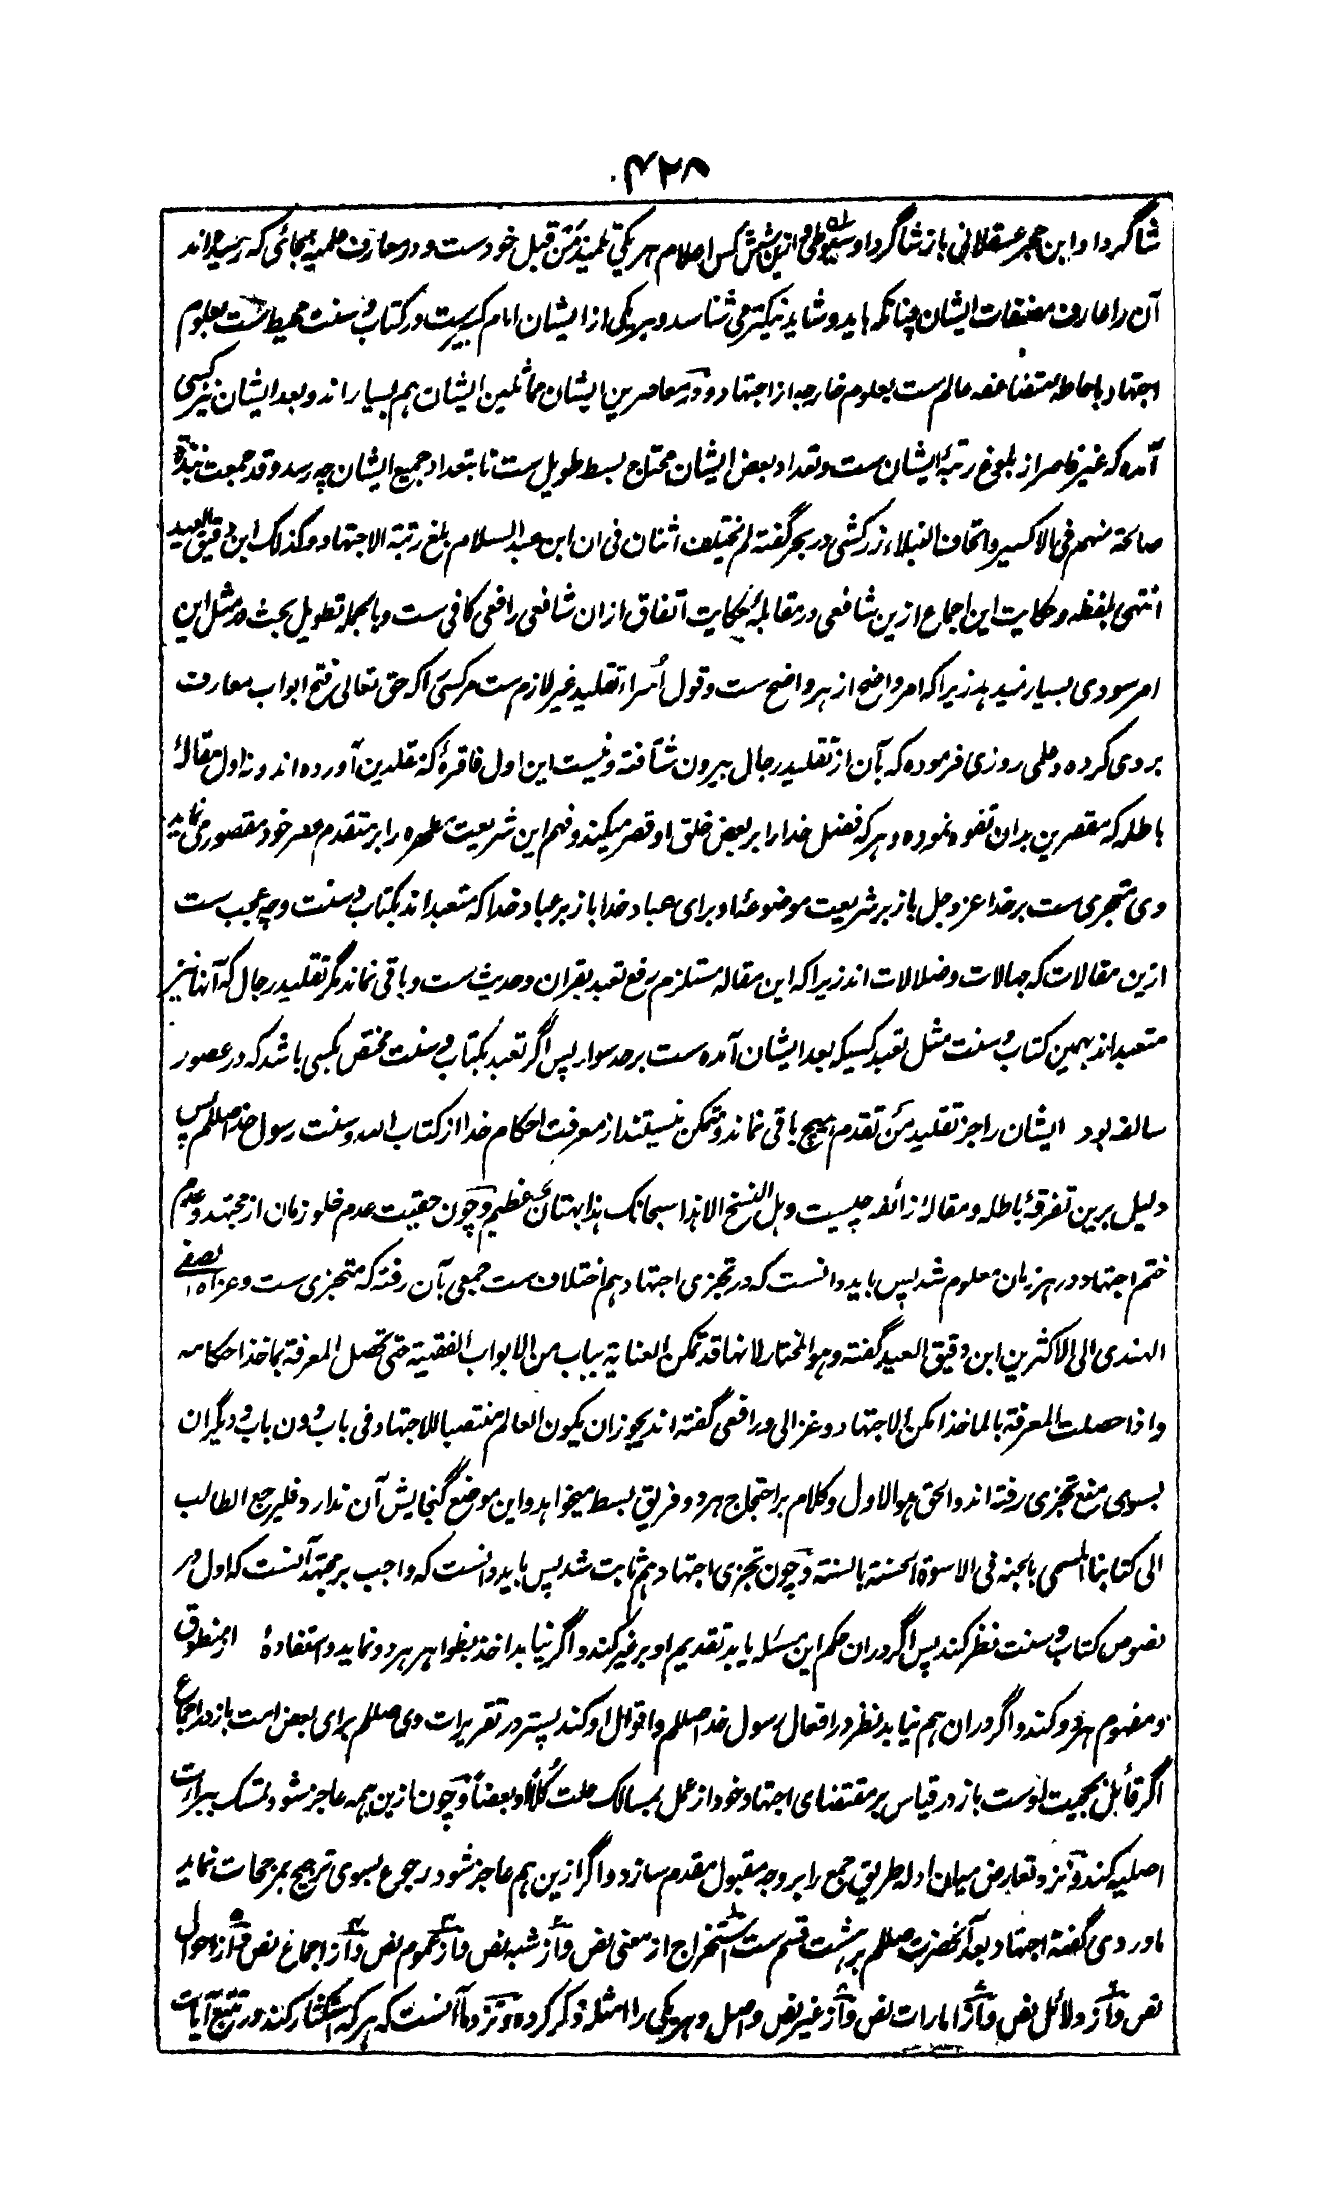 ۴۲۸
شاگرد او ابن حجر عسقلانی باز شاگرد او سیوطی و ازین شش کس اعلام هر یکی تلمیذ من قبل خودست و در معارف علمیه بجائی که رسیده‌اند
آن را عارف مصنفات ایشان چنانکه باید و شاید نیکتر می شناسد و هر یکی از ایشان امام کبیرست در کتاب و سنت محیط ست بعلوم
اجتهاد باحاطه متضاعفه عالم ست بعلوم خارجه از اجتهاد و در معاصرین ایشان مماثلین ایشان هم بسیار اند و بعد ایشان نیز کسی
آمده که غیر قاصر از بلوغ رتبهٔ ایشان ست و تعداد بعض ایشان محتاج بسط طویل ست تا بتعداد جمیع ایشان چه رسد و قد جمعت نبذة
صالحة منهم فی الاکسیر و اتحاف النبلاء زرکشی در بحر گفته لم یختلف اثنان فی ان ابن عبد السلام بلغ رتبة الاجتهاد و کذلک ابن دقیق العید
انتهی بلفظه و حکایت این اجماع ازین شافعی در مقابلهٔ حکایت اتفاق ازان شافعی رافعی کافی ست و بالجمله تطویل بحث در مثل این
امر سودی بسیار نمیدهد زیرا که امر واضح از هر واضح ست و قول اُسراء تقلید غیر لازم ست مر کسی را که حق تعالی فتح ابواب معارف
بر وی کرده و علمی روزی فرموده که بآن از تقلید رجال بیرون شتافته و نیست این اول فاقرهٔ که مقلدین آورده اند و نه اول مقالهٔ
باطله که مقصرین بدان تفوه نموده و هر که فضل خدا را بر بعض خلق او قصر میکند و فهم این شریعت مطهره را بر متقدم عصر خود مقصور می نماید
وی متجری ست بر خدا عز و جل باز بر شریعت موضوعهٔ او برای عباد خدا باز بر عباد خدا که متعبد اند بکتاب و سنت و چه عجب ست
ازین مقالات که جهالات و ضلالات اند زیرا که این مقاله مستلزم رفع تعبد بقران و حدیث ست و باقی نماند مگر تقلید رجال که آنها نیز
متعبد اند بهمین کتاب و سنت مثل تعبد کسیکه بعد ایشان آمده ست بر حد سوا پس اگر تعبد بکتاب و سنت مختص بکسی باشد که در عصور
سالفه بود ایشان را جز تقلید من تقدم هیچ باقی نماند و متمکن نیستند از معرفت احکام خدا از کتاب الله و سنت رسول خدا صللم پس
دلیل برین تفرقهٔ باطله و مقالهٔ زائفه چیست و هل النسخ الا هذا سبحانک هذا بهتان عظیم و چون حقیت عدم خلو زمان از مجتهد و عدم
ختم اجتهاد در هر زمان معلوم شد پس باید دانست که در تجزی اجتهاد هم اختلاف ست جمعی بآن رفته که متجزی ست و عزاه الصفی
الهندی الی الاکثرین ابن دقیق العید گفته و هو المختار لانها قد تمکن العنایة بباب من الابواب الفقهیة حتی تحصل المعرفة بماخذ احکامه
و اذا حصلت المعرفة بالماخذ امکن الاجتهاد و غزالی و رافعی گفته اند یجوز ان یکون العالم منتصبا للاجتهاد فی باب دون باب و دیگران
بسوی منع تجزی رفته اند و الحق هو الاول و کلام بر احتجاج هر دو فریق بسط میخواهد و این موضع گنجایش آن ندارد فلیرجع الطالب
الی کتابنا المسمی بالجنه فی الاسوة الحسنة بالسنة و چون تجزی اجتهاد هم ثابت شد پس باید دانست که واجب بر مجتهد آنست که اول در
نصوص کتاب و سنت نظر کند پس اگر دران حکم این مسئله یابد تقدیم او بر غیر کند و اگر نیابد اخذ بظواهر هر دو نماید و استفادهٔ از منطوق
و مفهوم هر دو کند و اگر دران هم نیابد نظر در افعال رسول خدا صللم و اقوال او کند پستر در تقریرات وی صللم برای بعض امت باز در اجماع
اگر قائل بحجیت اوست باز در قیاس بر مقتضای اجتهاد خود از عمل بمسالک علت کُلًّا او بعضاً و چون ازین همه عاجز شود تمسک ببراءت
اصلیه کند و نزد تعارض میان ادله طریق جمع را بر وجه مقبول مقدم سازد و اگر ازین هم عاجز شود رجوع بسوی ترجیح بمرجحات نماید
ماوردی گفته اجتهاد بعد آنحضرت صللم بر هشت قسم ست استخراج از معنی نص و از شبه نص و از عموم نص و از اجماع نص و از احوال
نص و از دلائل نص و از امارات نص و از غیر نص و اصل و هر یکی را امثله ذکر کرده و نزد ما آنست که هر که استکثار کند در تتبع آیات